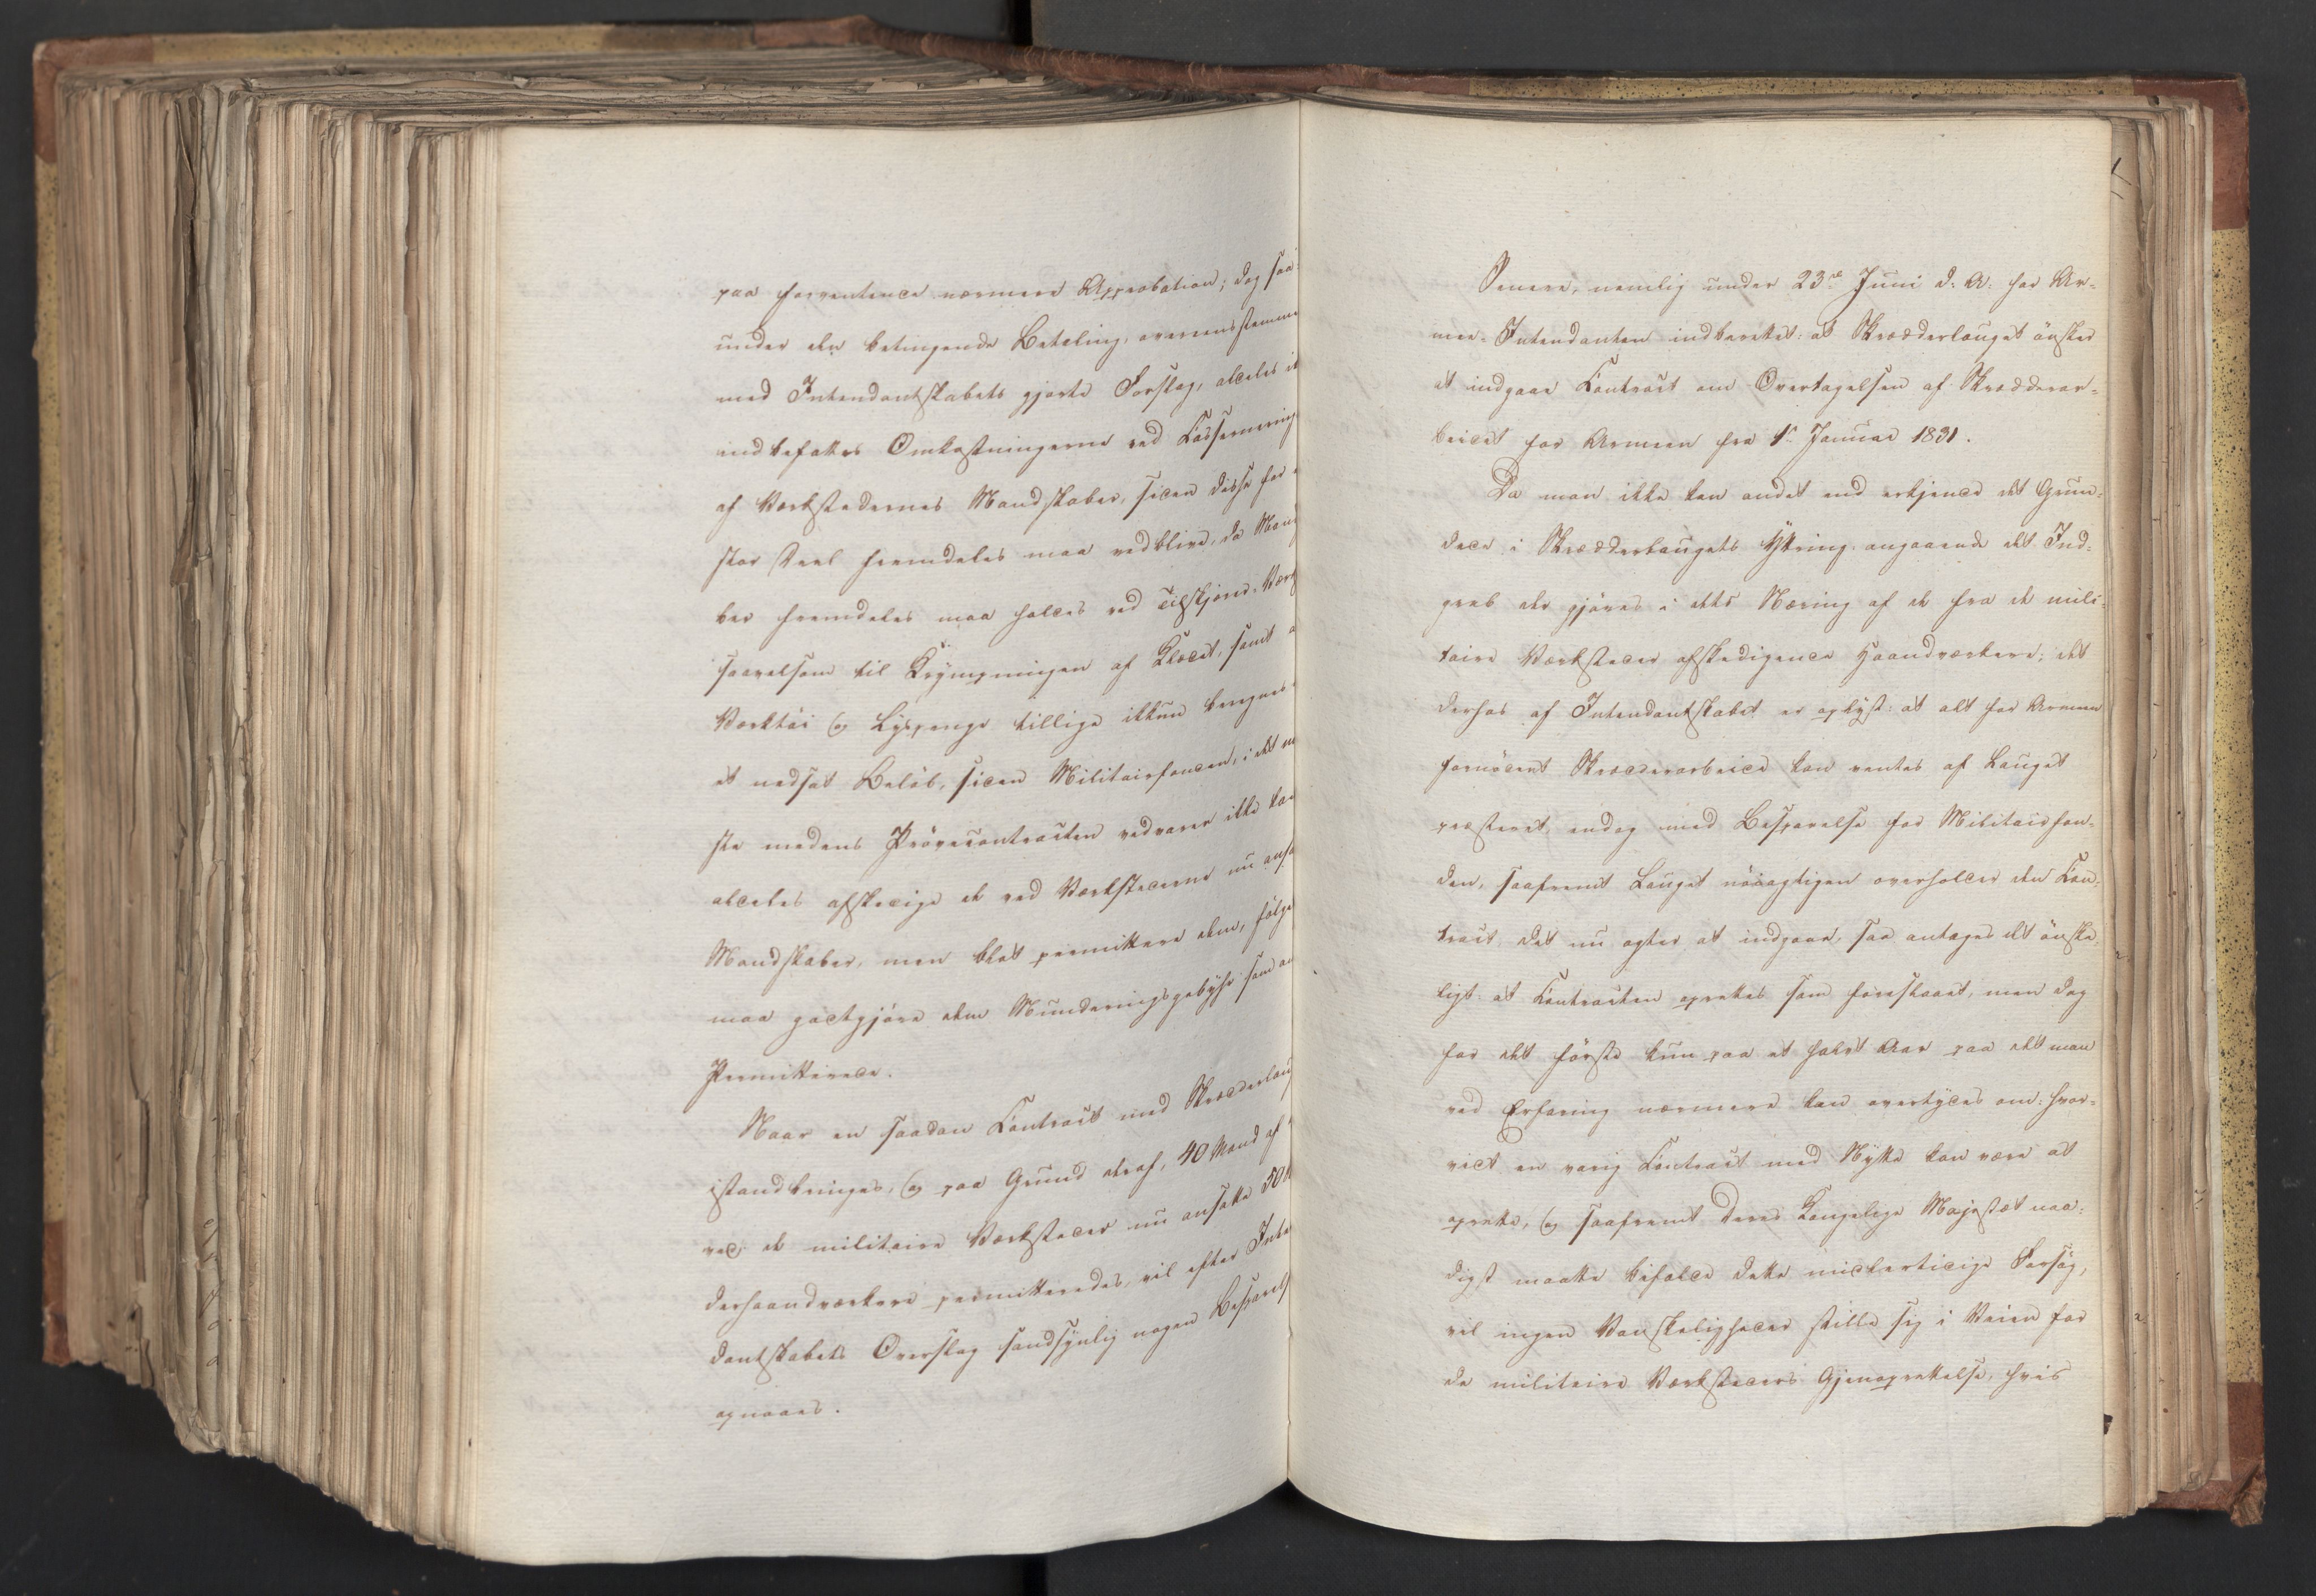 paa forventende nærmere Approbation; dog saa
under den betingende Betaling, overeensstemme
med Intendantskabets gjorte Forslag, aldeles i
indbefattes Omkostningerne ved Casserneringe
af Værkstedernes Mandskaber, siden disse for
stor Deel fremdeles maa vedblive, da Mand
ber fremdeles maa holdes ved Tilskjærer, Værk
saavelsom til Krympningen af Klædet, samt a
Værktøi og Lyspenge tillige ikkun beregnes
et nedsat Beløb, siden Militairfonden, i det m
ste medens Prøvecontracten vedvarer ikke kan
aldeles afskedige de ved Værkstederne nu ansa
Mandskaber, men blot permittere dem, følge
maa godtgjøre dem Munderingsgebyhr som an
Permitterede.
Naar en saadan Contract med Skrædderlau
istandbringes, og paa Grund deraf, 40 Mand af
ved de militaire Værksteder nu ansatte 50
derhaandværkere permitteredes, vil efter Inten
dantskabets Overslag sandsynlig nogen Besparels
opnaaes.
Senere, nemlig under 23de Juni d: A: har Ar-
mee-Intendanten indberettet: at Skrædderlauget ønsker
at indgaae Contract om Overtagelsen af Skrædderar-
beidet for Armeen fra 1ste Januar 1831.
Da man ikke kan andet end erkjende det Grun-
dede i Skrædderlaugets Yttring angaaende det Ind-
greb der gjøres i dets Næring af de fra de mili-
taire Værksteder afskedigende Haandværkere; det
derhos af Intendantskabet er oplyst: at alt for Armeen
fornødent Skrædderarbeide kan ventes af Lauget
præsteret, endog med Besparelse for Militairfon-
den, saafremt Lauget nøiagtigen overholder den Con-
tract det nu agter at indgaae, saa antages det ønske-
ligt: at Contracten oprettes som foreslaaet, men dog
for det første kun paa et halvt Aar paa det man
ved Erfaring nærmere kan overtydes om: hvor-
vidt en varig Contract med Nytte kan være at
oprette, og saafremt Deres Kongelige Majestæt naa-
digst maatte bifalde dette midlertidige Forsøg,
vil ingen Vanskeligheder stille sig i Veien for
de militaire Værksteders Gjenoprettelse, hvis